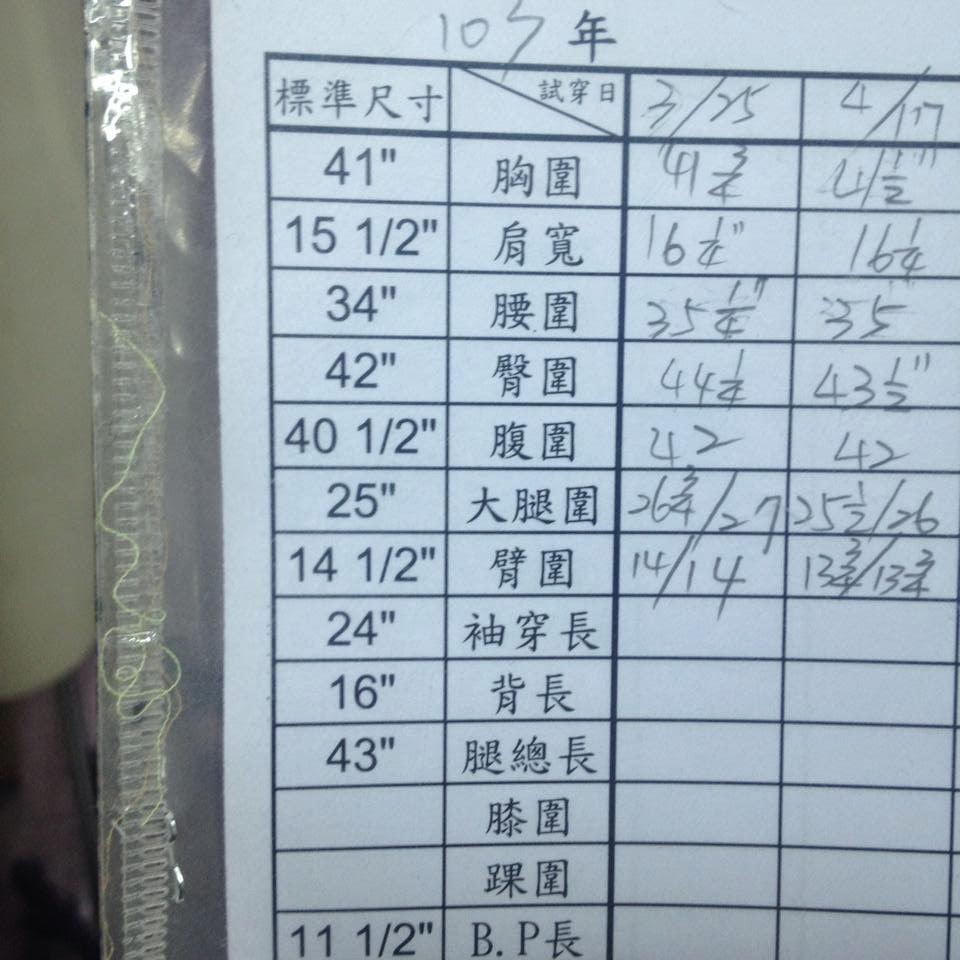 103 年
標準尺寸 試穿日 3/25 4/17
41" 胸圍 41 3/4" 41 1/2"
15 1/2" 肩寬 16 1/4" 16 1/4
34" 腰圍 35 1/4" 35"
42" 臀圍 44 1/4 43 1/2"
40 1/2" 腹圍 42 42
25" 大腿圍 26 3/4/27 25 1/2/26
14 1/2" 臂圍 14/14 13 3/4/13 3/4
24" 袖穿長
16" 背長
43" 腿總長
膝圍
踝圍
11 1/2" B.P長